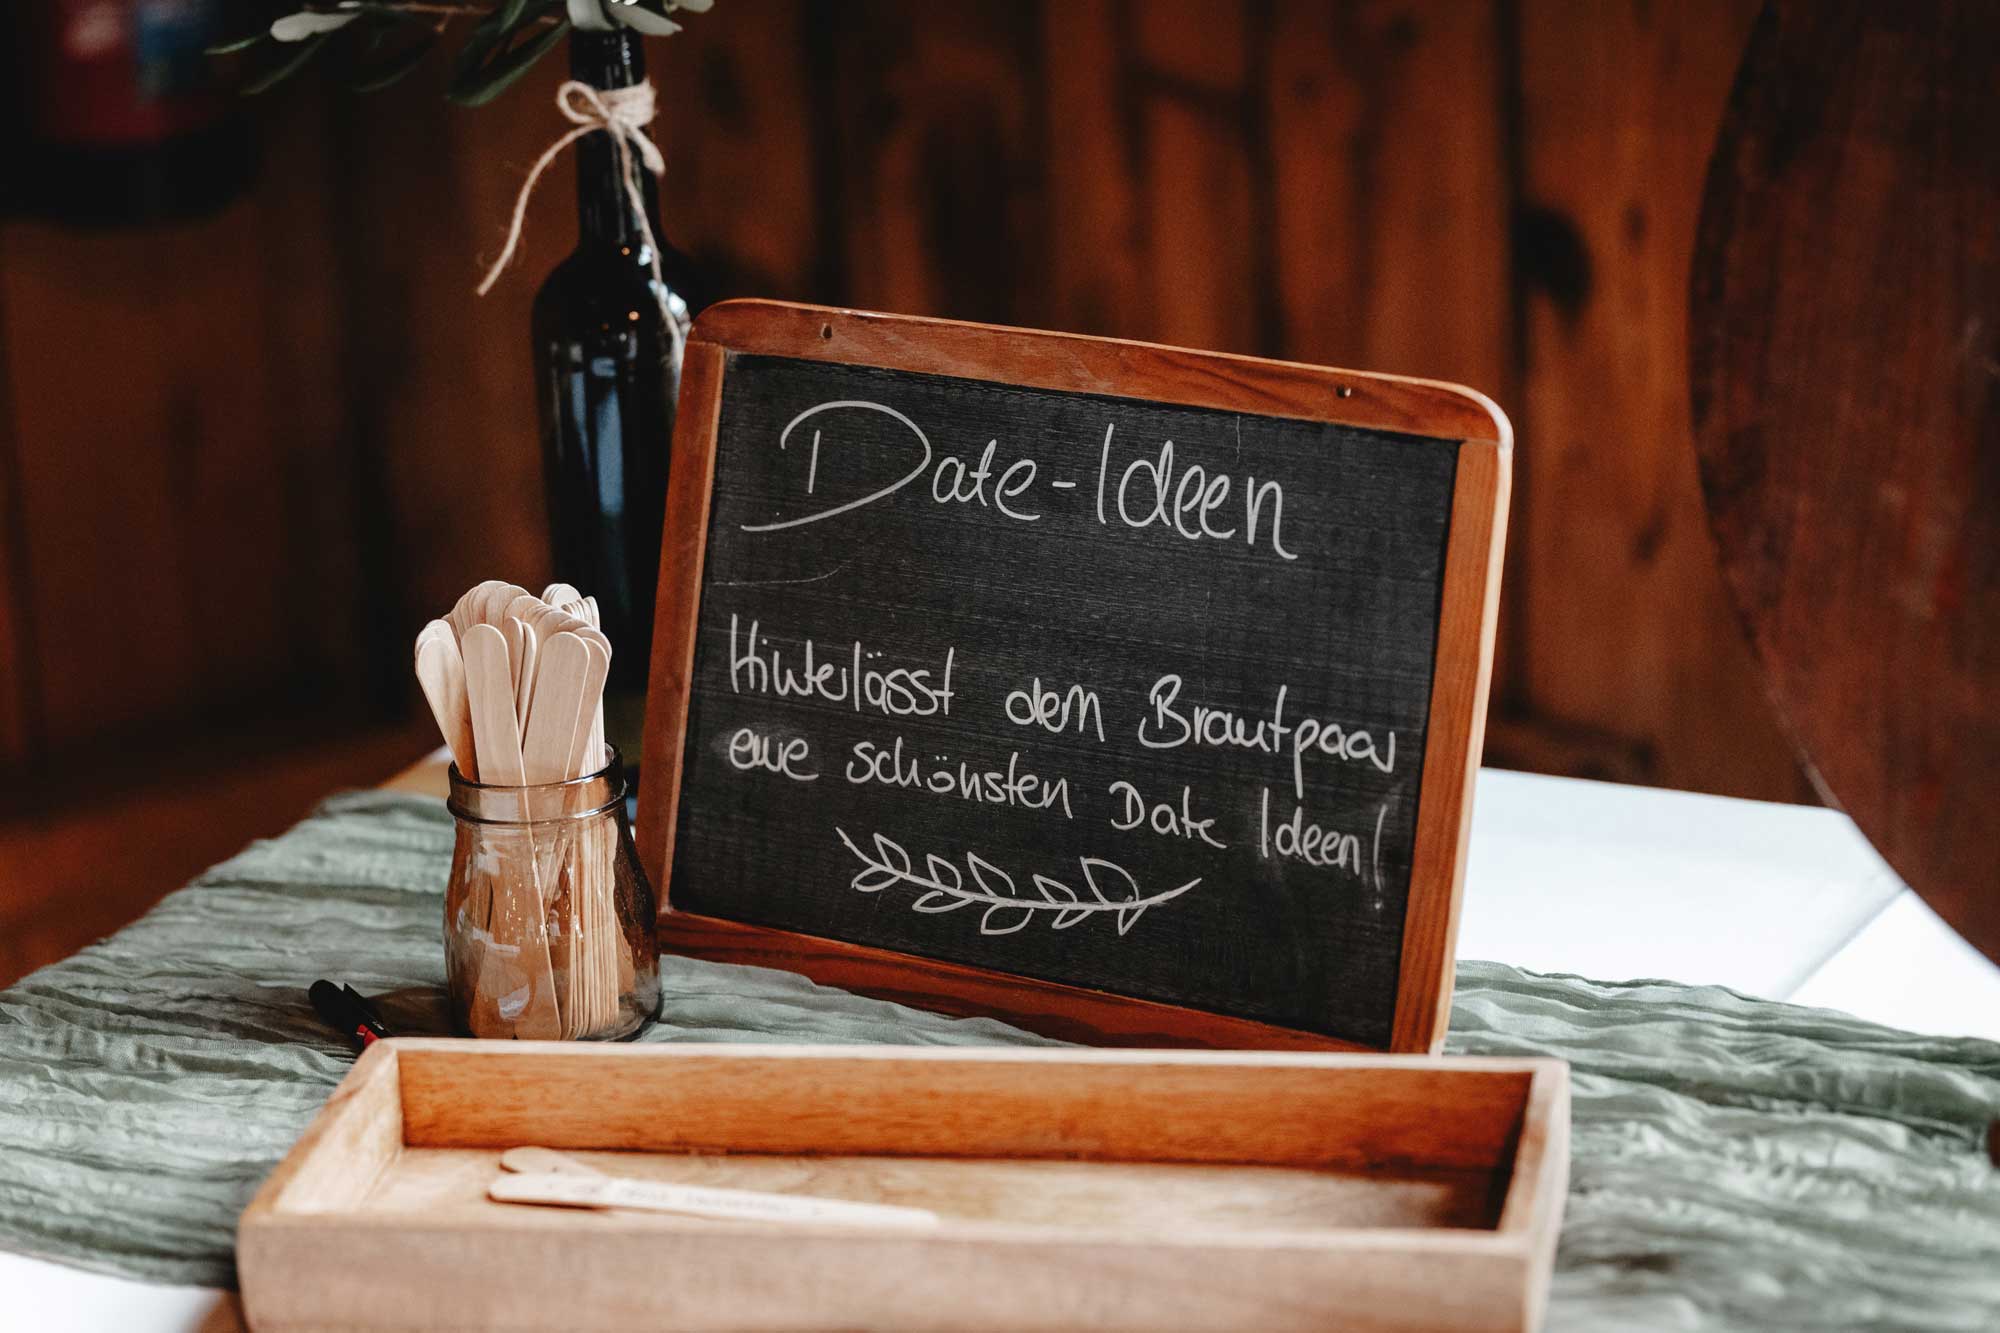 Date-Ideen
Hinterlässt dem Brautpaar
eure schönsten Date Ideen!